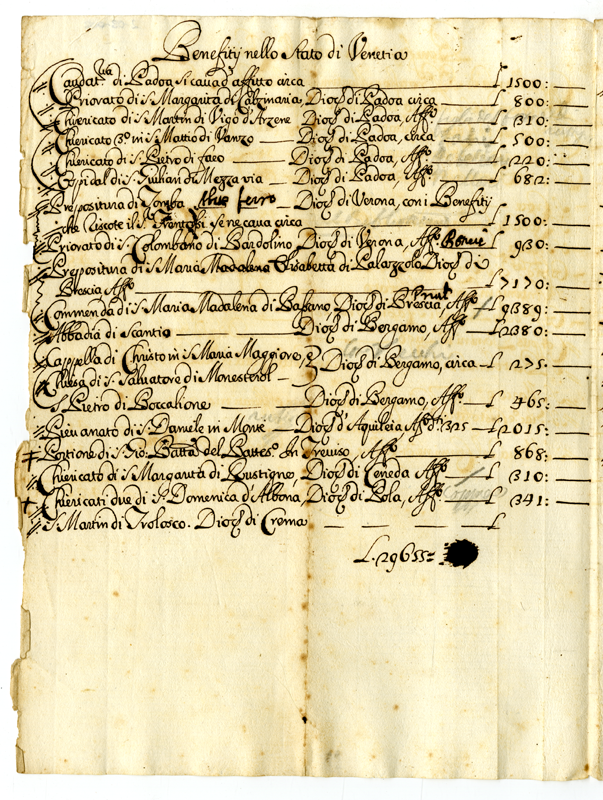 Benefitij nello Stato di Venetia
di Padoa si caua d'affitto circa L 1500:
Priorato di S. Margarita di Dioc. di Padoa circa L 800:
Chiericato di S. Martin di Vigo d'Arzene Dioc. di Padoa, Aff.º L 310:
Chiericato 3.º in S. Mattio di Vanzo Dioc. di Padoa, circa L 500:
Chiericato di S. Pietro di Dioc. di Padoa, Aff.º L 220:
Hospidal di S. Giulian di Mezza via Dioc. di Padoa, Aff.º L 682:
Prepositura di Dioc. di Verona, con i Benefitij
che riscote il S. se ne caua circa L 1500:
Priorato di S. Colombano di Bardolino Dioc. di Verona, Aff.º L 930:
Prepositura di S. Maria Madalena Elisabetta di Palazzolo Dioc. di
Brescia Aff.º L 7170:
Commenda di S. Maria Madalena di Dioc. di Brescia, Aff.º L 9389:
Abbadia di Scantio Dioc. di Bergamo, Aff.º L 2380:
Cappella di Christo in S. Maria Maggiore
Dioc. di Bergamo, circa L 275:
Chiesa di S. Salvatore di Monesterol
S. Pietro di Boccalione Dioc. di Bergamo, Aff.º L 465:
Pieuanato di S. Daniele in Dioc. d'Aquileia Aff.º d. 1325 L 2015:
Portione di S. Gio. Batta. del Battes.º In Treuiso, Aff.º L 868:
Chiericato di S. Margarita di Rustigno, Dioc. di Ceneda Aff.º L 310:
Chiericati due di S. Domenica d'Albona, Dioc. di Pola, Aff.º L 341:
S. Martin di Dioc. di Crema L
L. 29655: